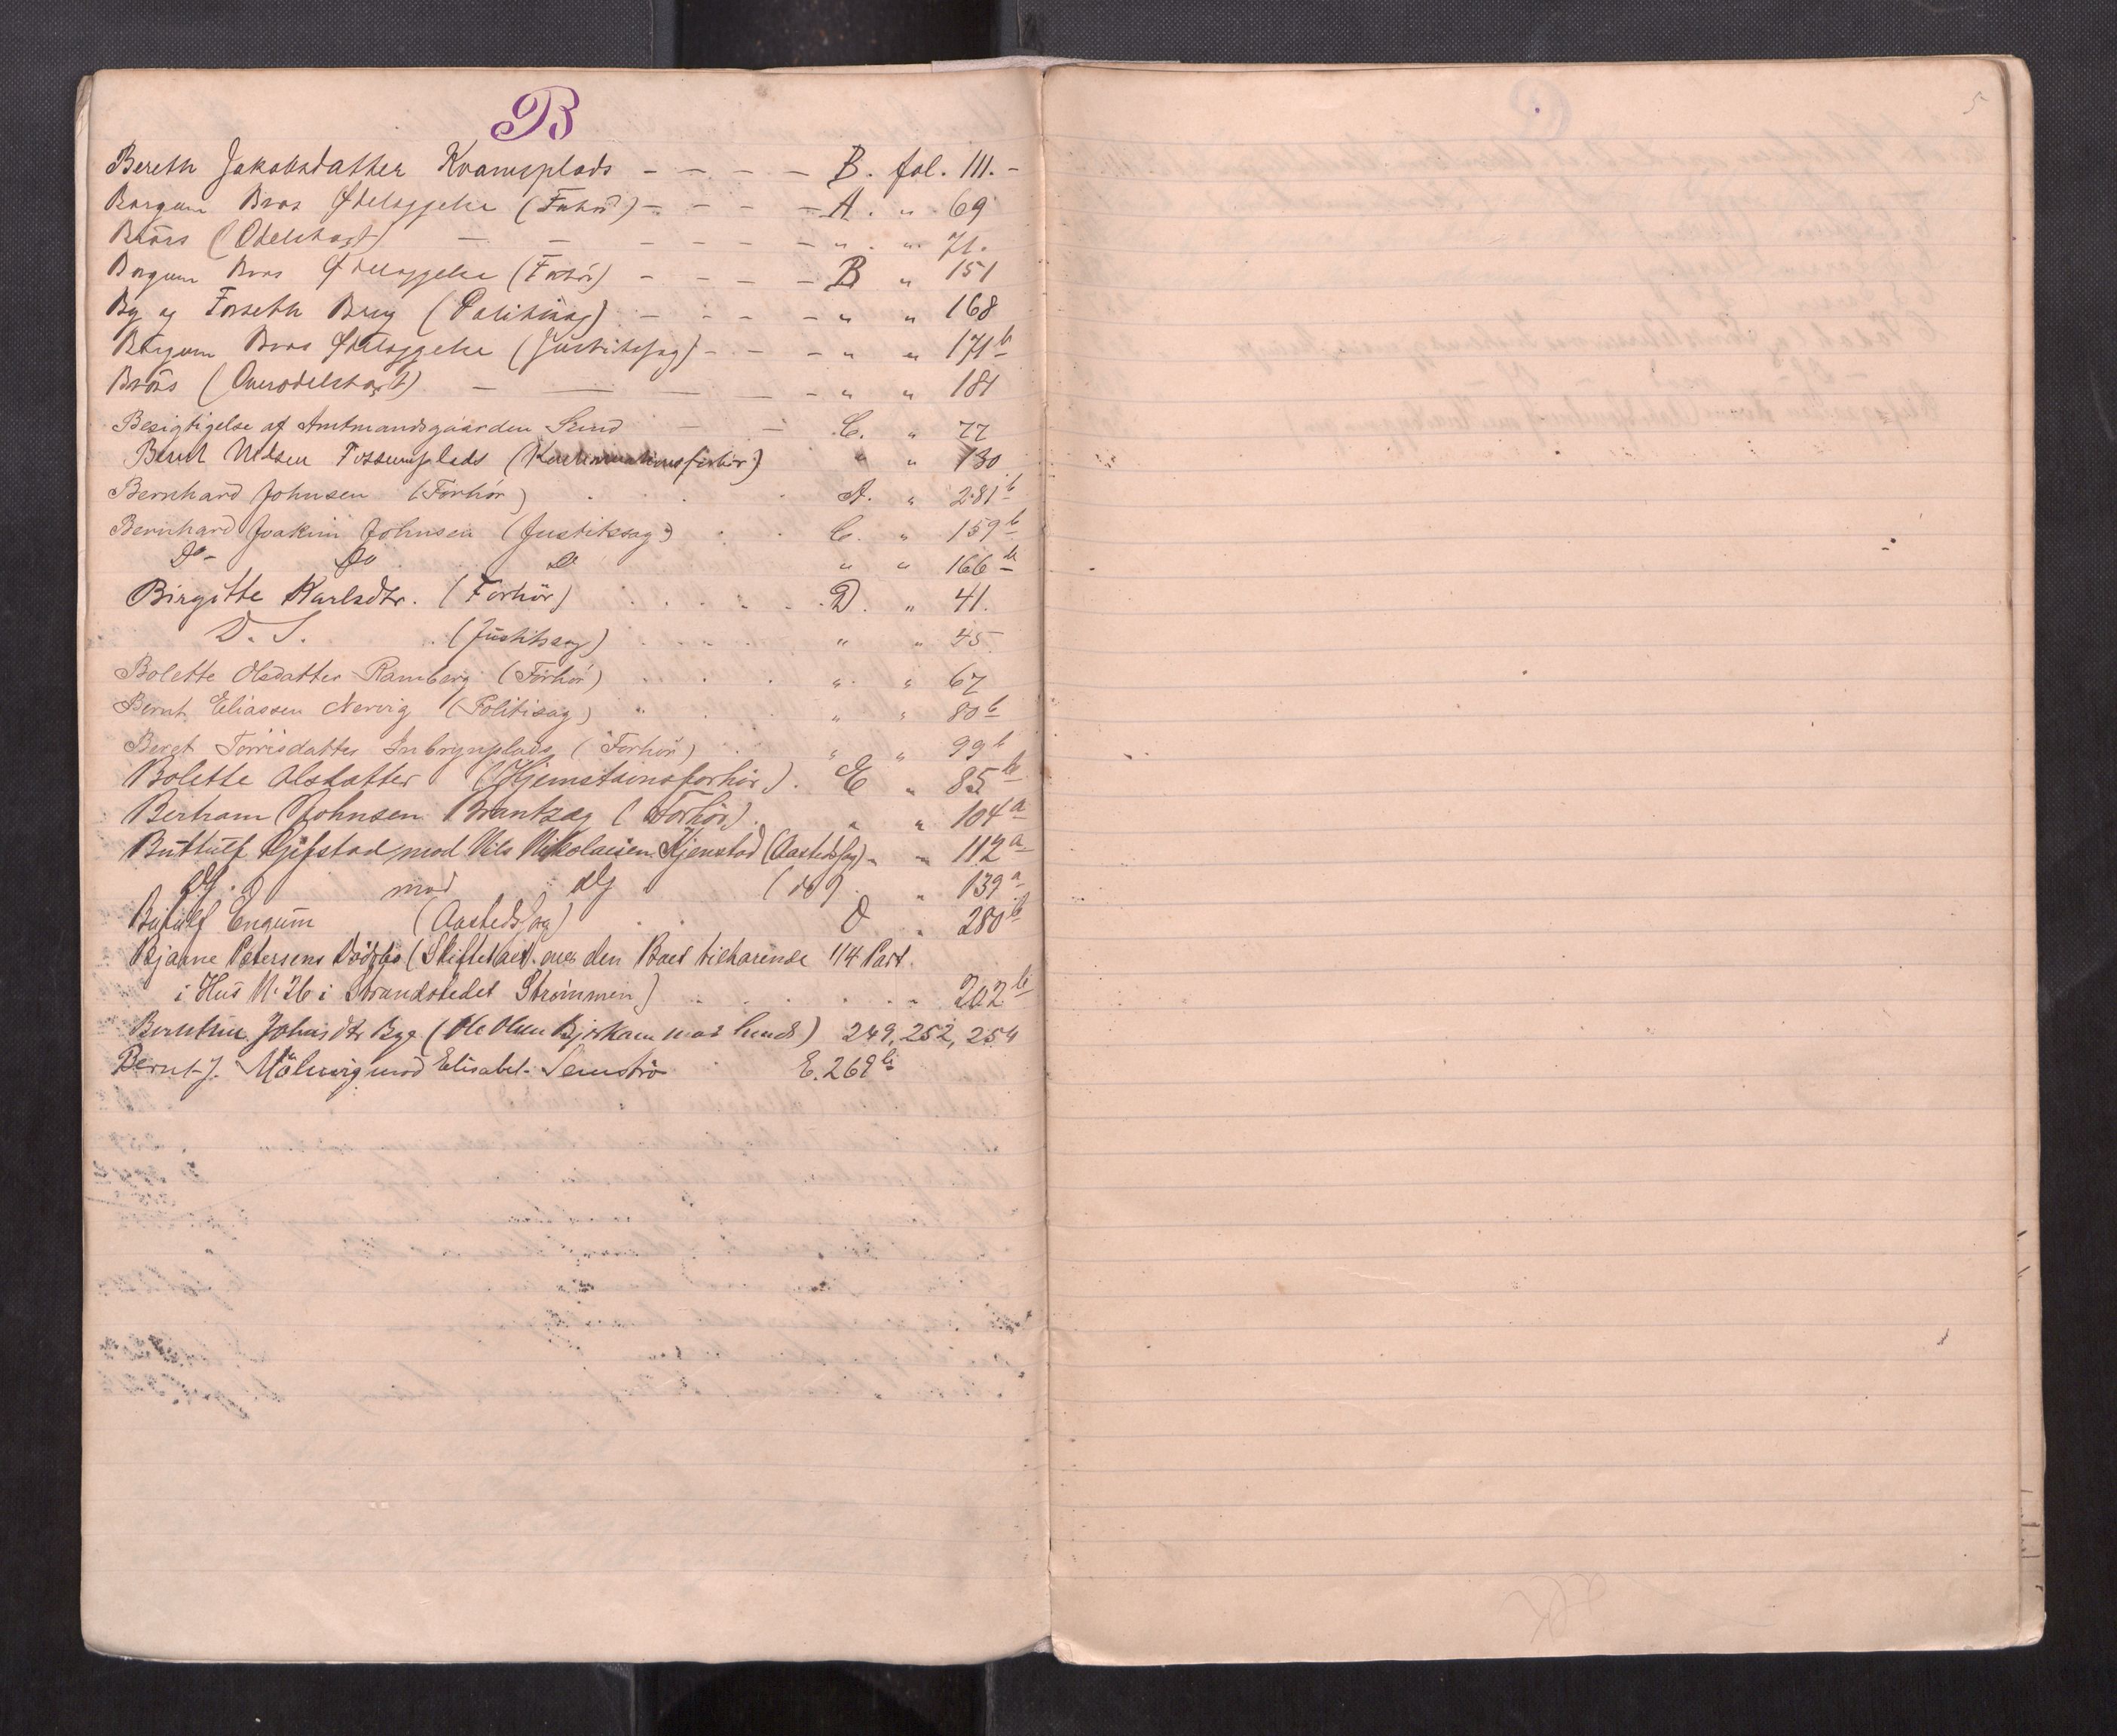 B
5
Bereth Jakobsdatter Kvamsplads - - - - B. fol. 111. -
Borgum Bros Ødelæggelse (Forhör) - - - - A. " 69
Brörs (Odelstagt) - - - - - - " . " 71.
Borgum Bros Ødelæggelse (Forhör) - - - - B " 151
By og Forseth Brug (Politisag) - - - - " " 168
Borgum Bros Ødelæggelse (Justitssag) - - - " " 171 b
Brörs (Overodelstagt) - - - - - " " 181
Besigtigelse af Amtmandsgaarden Sund - - C. " 77
Bernt Nilsen Fossumplads ( " " 130
Bernhard Johnsen (Forhör) . . . A. " 281 b
Bernhard Joakim Johnsen (Justitssag) . . C. " 159 b
Do - Do Do " " 166 b
Birgitte Karlsdtr. (Forhör) . . . . D. " 41.
D. S. (Justitssag) . . . . " " 45
Bolette Olsdatter Ramberg (Forhör) . . . " " 67
Bernt Eliassen Nervig (Politisag) " . . " " 80 b
Beret Torrisdatter Inbrynplads (Forhör) . " " 99 b
Bolette Olsdatter (Hjemstavnsforhör) . E " 85 b
Bertram Johnsen Brantzæg (Forhör) . " " 104 a
Buttulf Gifstad mod Nils Nikolaisen Kjenstad (Aastedssag) " " 112 a
dg . mod dg (do) . " 139 a
Botulf Engum (Aastedssag) . . D . 280 b
Bjarne Petersens Dødsbo (Skiftet over den Boet tilhørende 1/4 Part
i Hus N. 26 i Strandstedet Strømmen) . . . . . . 202 b
Berntine Johnsdtr Bye (Ole Olsen Bjerkam mod hende) 249, 252, 254
Bernt J. Mölnvig mod Elisabet Semstrø E. 269 b